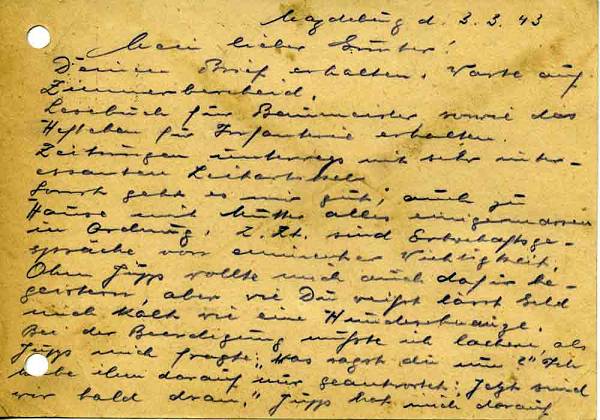 Magdeburg d. 3.3.43
Mein lieber Günter!
Deinen Brief erhalten. Warte auf
Zimmerbescheid.
Lesebuch für Baumeister sowie das
Heftchen für Infanterie erhalten.
Zeitungen unterwegs mit sehr inter-
essanten Leitartikeln
Sonst geht es mir gut; auch zu
Hause mit Mutter alles einigermassen
in Ordnung. Z. Zt. sind Erbschaftsge-
spräche von eminenter Wichtigkeit.
Jupp wollte mich auch dafür be-
geistern, aber wie Du weißt lässt Geld
mich kalt wie eine Hundeschnauze.
Bei der Beerdigung mußte ich lachen, als
Jupp mich fragte: „Was sagst du nun?" Ich
habe ihm darauf nur geantwortet: Jetzt sind
wir bald dran." Jupp hat mich darauf